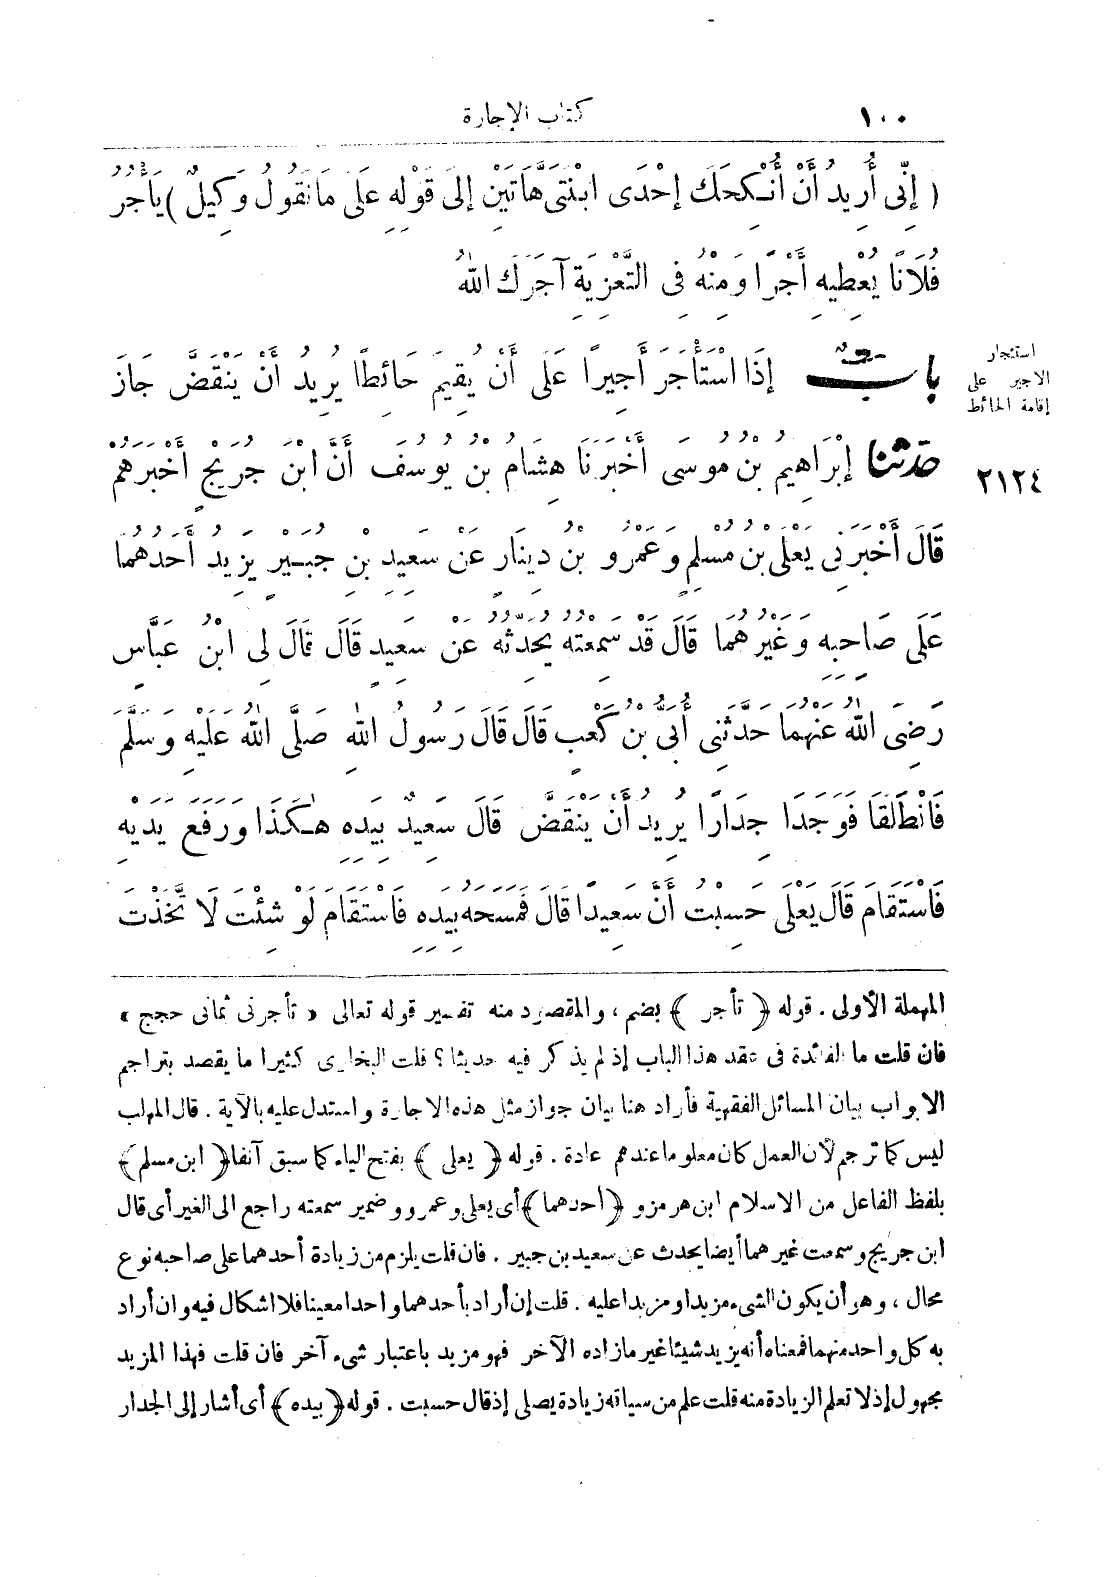 ١٠٠ كتاب الإجارة
( إِنِّى أُرِيدُ أَنْ أُنْكِحَكَ إِحْدَى ابْنَتَىَّ هَاتَيْنِ إِلَى قَوْلِهِ عَلَى مَا نَقُولُ وَكِيلٌ ) يَأْجُرُ
فُلَانًا يُعْطِيهِ أَجْرًا وَمِنْهُ فِى التَّعْزِيَةِ آجَرَكَ اللهُ
بابٌ إِذَا اسْتَأْجَرَ أَجِيرًا عَلَى أَنْ يُقِيمَ حَائِطًا يُرِيدُ أَنْ يَنْقَضَّ جَازَ
استئجار
الاجير على
إقامة الحائط
٢١٢٤ حَدَّثَنَا إِبْرَاهِيمُ بْنُ مُوسَى أَخْبَرَنَا هِشَامُ بْنُ يُوسُفَ أَنَّ ابْنَ جُرَيْجٍ أَخْبَرَهُمْ
قَالَ أَخْبَرَنِى يَعْلَى بْنُ مُسْلِمٍ وَعَمْرُو بْنُ دِينَارٍ عَنْ سَعِيدِ بْنِ جُبَيْرٍ يَزِيدُ أَحَدُهُمَا
عَلَى صَاحِبِهِ وَغَيْرُهُمَا قَالَ قَدْ سَمِعْتُهُ يُحَدِّثُهُ عَنْ سَعِيدٍ قَالَ قَالَ لِى ابْنُ عَبَّاسٍ
رَضِىَ اللهُ عَنْهُمَا حَدَّثَنِى أُبَىُّ بْنُ كَعْبٍ قَالَ قَالَ رَسُولُ اللهِ صَلَّى اللهُ عَلَيْهِ وَسَلَّمَ
فَانْطَلَقَا فَوَجَدَا جِدَارًا يُرِيدُ أَنْ يَنْقَضَّ قَالَ سَعِيدٌ بِيَدِهِ هٰكَذَا وَرَفَعَ يَدَيْهِ
فَاسْتَقَامَ قَالَ يَعْلَى حَسِبْتُ أَنَّ سَعِيدًا قَالَ فَمَسَحَهُ بِيَدِهِ فَاسْتَقَامَ لَوْ شِئْتَ لَاتَّخَذْتَ
المهملة الأولى . قوله ﴿ تأجر ﴾ بضم ، والمقصود منه تفسير قوله تعالى « تأجرنى ثمانى حجج »
فان قلت ما الفائدة فى عقد هذا الباب إذ لم يذكر فيه حديثا ؟ قلت البخارى كثيرا ما يقصد بتراجم
الابواب بيان المسائل الفقهية فأراد هنا بيان جواز مثل هذه الاجارة واستدل عليه بالآية . قال المهلب
ليس كما ترجم لأن العمل كان معلوما عندهم عادة . قوله ﴿ يعلى ﴾ بفتح الياء كما سبق آنفا ﴿ ابن مسلم ﴾
بلفظ الفاعل من الاسلام ابن هرمز و ﴿ أحدهما ﴾ أى يعلى وعمرو وضمير سمعته راجع الى الغير أى قال
ابن جريج وسمعت غيرهما أيضا يحدث عن سعيد بن جبير . فان قلت يلزم من زيادة أحدهما على صاحبه نوع
محال ، وهو أن يكون الشىء مزيدا ومزيدا عليه . قلت إن أراد بأحدهما واحدا معينا فلا اشكال فيه وان أراد
به كل واحد منهما فمعناه أنه يزيد شيئا غير ما زاده الآخر فهو مزيد باعتبار شىء آخر فان قلت فهذا المزيد
مجهول إذ لا تعلم الزيادة منه قلت علم من سياقه زيادة يعلى إذ قال حسبت . قوله ﴿ بيده ﴾ أى أشار إلى الجدار